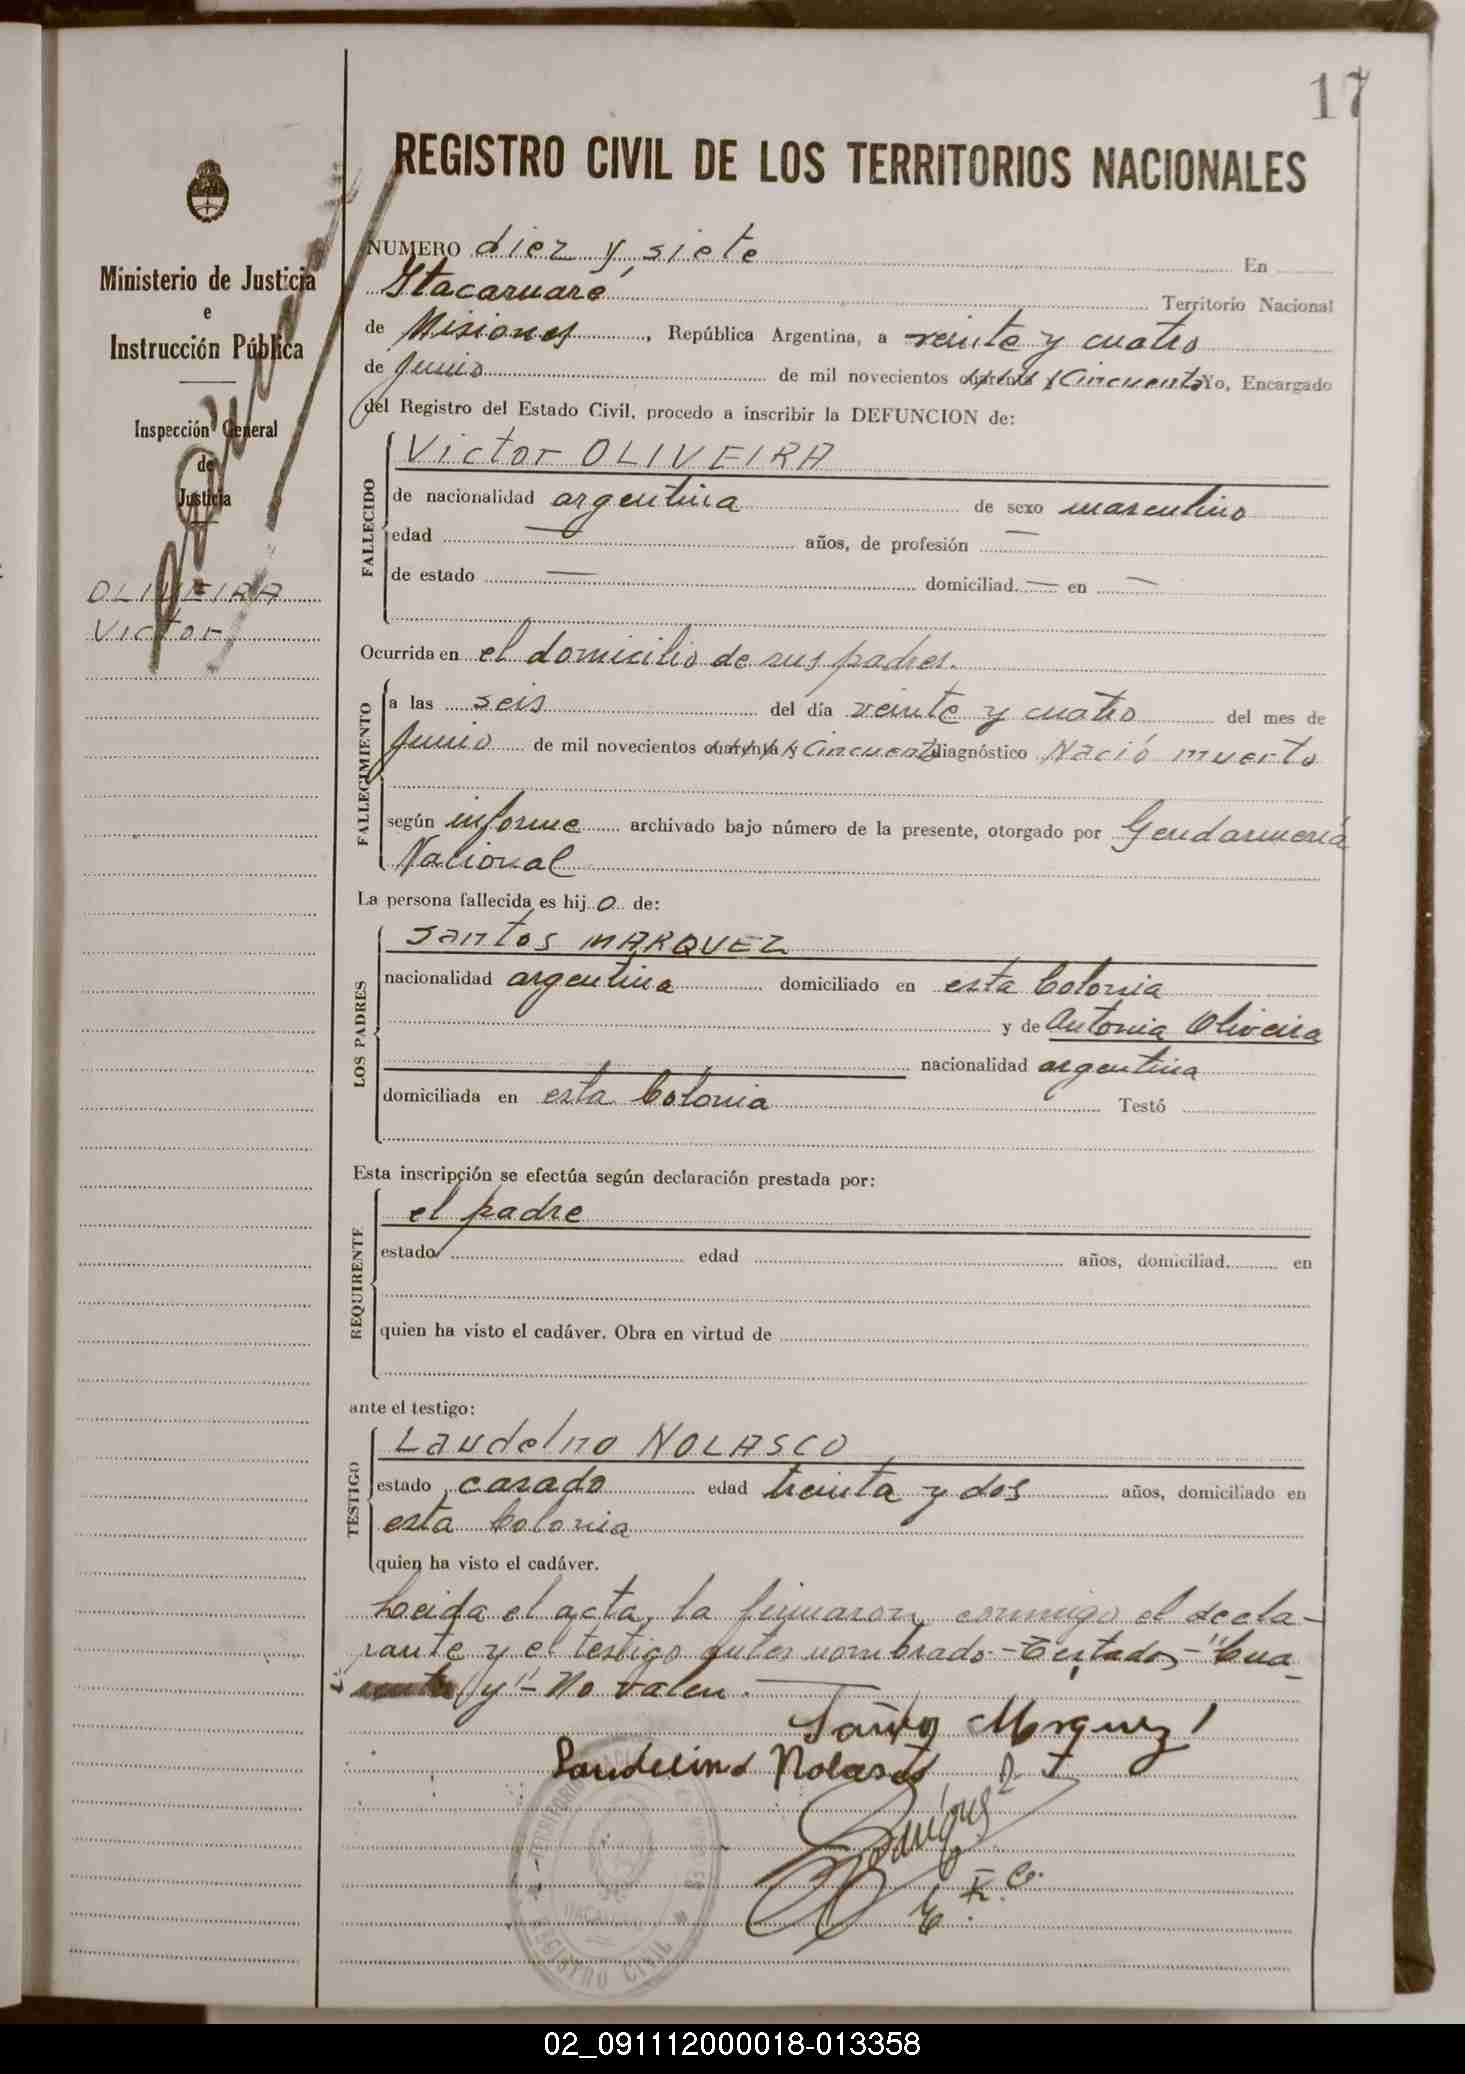 17
REGISTRO CIVIL DE LOS TERRITORIOS NACIONALES
Ministerio de Justicia
e
Instrucción Pública
Inspección General
de
Justicia
OLIVEIRA
Victor
NUMERO diez y siete En
Itacaruaré Territorio Nacional
de Misiones, República Argentina, a veinte y cuatro
de Junio de mil novecientos cuarenta y Cincuenta Yo, Encargado
del Registro del Estado Civil, procedo a inscribir la DEFUNCION de:
FALLECIDO
Victor OLIVEIRA
de nacionalidad argentina de sexo masculino
edad — años, de profesión —
de estado — domiciliad. — en —
Ocurrida en el domicilio de sus padres.
FALLECIMIENTO
a las seis del día veinte y cuatro del mes de
Junio de mil novecientos cuarenta y Cincuenta diagnóstico Nació muerto
según informe archivado bajo número de la presente, otorgado por Gendarmería
Nacional
La persona fallecida es hij o de:
LOS PADRES
Santos MARQUEZ
nacionalidad argentina domiciliado en esta Colonia
y de Antonia Oliveira
nacionalidad argentina
domiciliada en esta Colonia Testó
Esta inscripción se efectúa según declaración prestada por:
REQUIRENTE
el padre
estado edad años, domiciliad. en
quien ha visto el cadáver. Obra en virtud de
ante el testigo:
TESTIGO
Laudelno NOLASCO
estado casado edad treinta y dos años, domiciliado en
esta Colonia
quien ha visto el cadáver.
Leida el acta, la firmaron conmigo el decla-
rante y el testigo antes nombrado - Testados - "Cua-
renta y" - No valen.
Santos Marquez
Laudelino Nolasco
E. R. C.
REGISTRO CIVIL
02_091112000018-013358